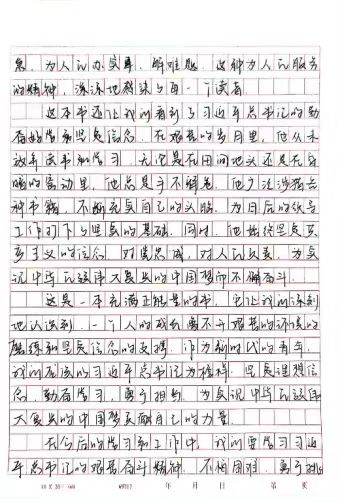 急，为人民办实事，解难题，这种为人民服务
的精神，深深地感染了每一个读者
这本书还让我们看到了习近平总书记的勤
奋好学和坚定信念，在艰苦的岁月里，他从未
放弃读书和学习，无论是在田间地头还是在窑
的窑洞里，他总是手不释卷，他广泛涉猎各
种书籍，不断充实自己的头脑，为日后的从
工作打下了坚实的基础，同时，他始终坚定
主义的信念，对党忠诚，对人民负责，为实
现中华民族伟大复兴的中国梦而不懈奋斗。
这是一本充满正能量的书，它让我们深刻
地认识到，一个人的成长离不开艰苦的环境的
磨练和坚定信念的支撑，作为新时代的青年，
我们应该以习近平总书记为榜样，坚定理想信
念，勤奋学习，勇于担当，为实现中华民族伟
大复兴的中国梦贡献自己的力量。
在今后的学习和工作中，我们要学习习近
平总书记的艰苦奋斗精神，不怕困难，勇于挑
年 月 日 第 页